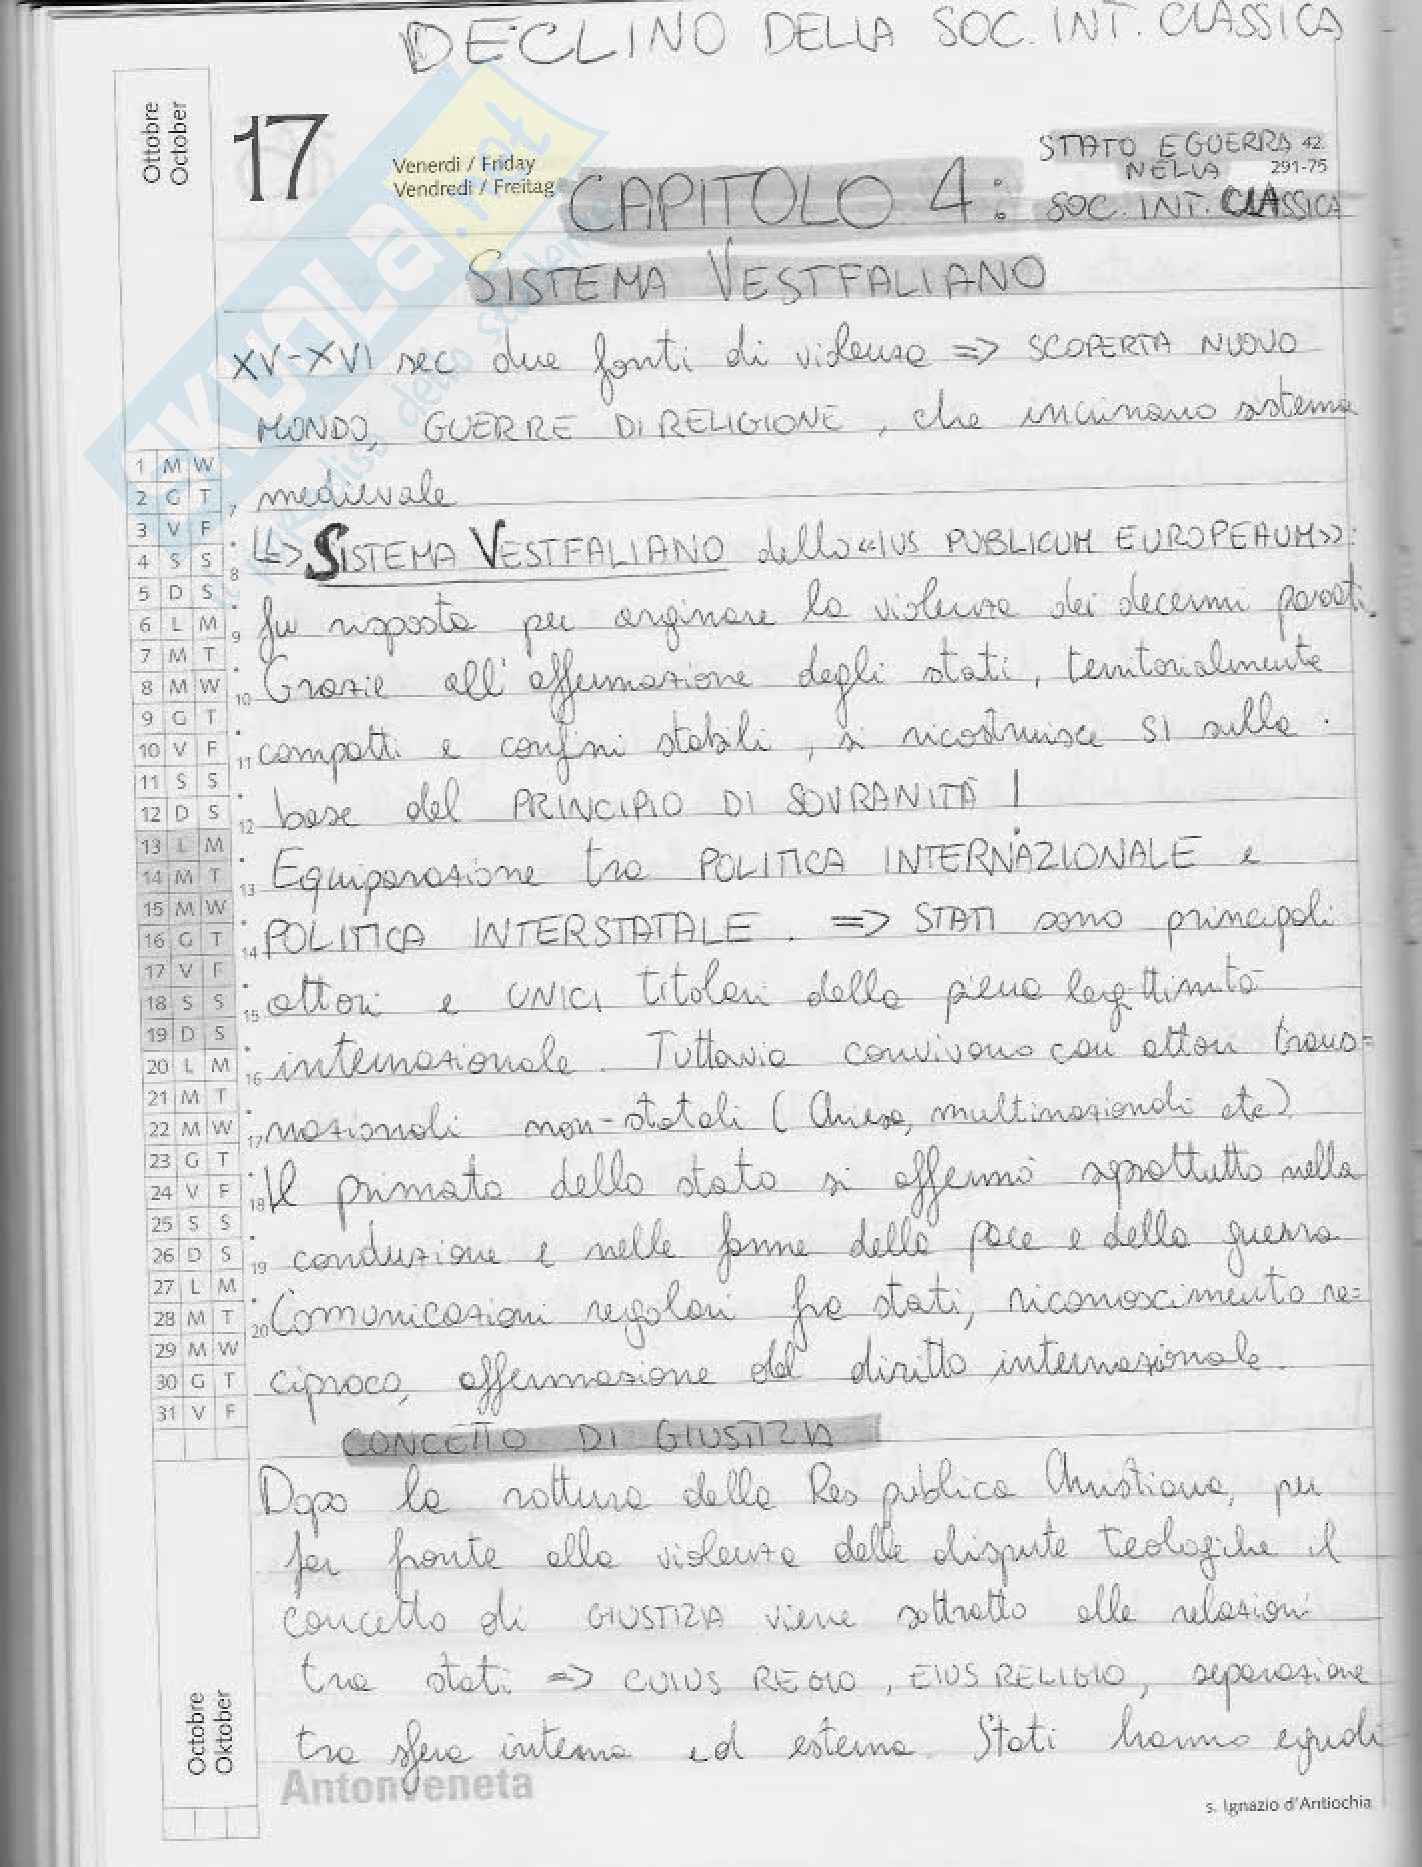 DECLINO DELLA SOC. INT. CLASSICA
Ottobre
October
17
Venerdì / Friday
Vendredi / Freitag
CAPITOLO 4:
STATO E GUERRA
NELLA
SOC. INT. CLASSICA
42.
291-75
SISTEMA VESTFALIANO
XV-XVI sec due fonti di violenza => SCOPERTA NUOVO
MONDO, GUERRE DI RELIGIONE, che incrinano sistema
medievale
↳> SISTEMA VESTFALIANO dello «IUS PUBLICUM EUROPEAUM»:
fu risposta per arginare la violenza dei decenni passati.
Grazie all'affermazione degli stati, territorialmente
compatti e confini stabili, si ricostruisce SI sulla
base del PRINCIPIO DI SOVRANITÀ!
Equiparazione tra POLITICA INTERNAZIONALE e
POLITICA INTERSTATALE. => STATI sono principali
attori e UNICI titolari della piena legittimità
internazionale. Tuttavia convivono con attori trans=
nazionali non-statali (Chiesa, multinazionali etc)
Il primato dello stato si affermò soprattutto nella
conduzione e nelle forme della pace e della guerra
Comunicazioni regolari fra stati, riconoscimento re=
ciproco, affermazione del diritto internazionale.
CONCETTO DI GIUSTIZIA
Dopo la rottura della Res publica Christiana, per
far fronte alla violenza delle dispute teologiche il
concetto di GIUSTIZIA viene sottratto alle relazioni
tra stati => CUIUS REGIO, EIUS RELIGIO, separazione
tra sfera interna ed esterna. Stati hanno eguali
1 M W
2 G T
3 V F
4 S S
5 D S
6 L M
7 M T
8 M W
9 G T
10 V F
11 S S
12 D S
13 L M
14 M T
15 M W
16 G T
17 V F
18 S S
19 D S
20 L M
21 M T
22 M W
23 G T
24 V F
25 S S
26 D S
27 L M
28 M T
29 M W
30 G T
31 V F
7
8
9
10
11
12
13
14
15
16
17
18
19
20
Octobre
Oktober
AntonVeneta
s. Ignazio d'Antiochia
SKUOLA.net